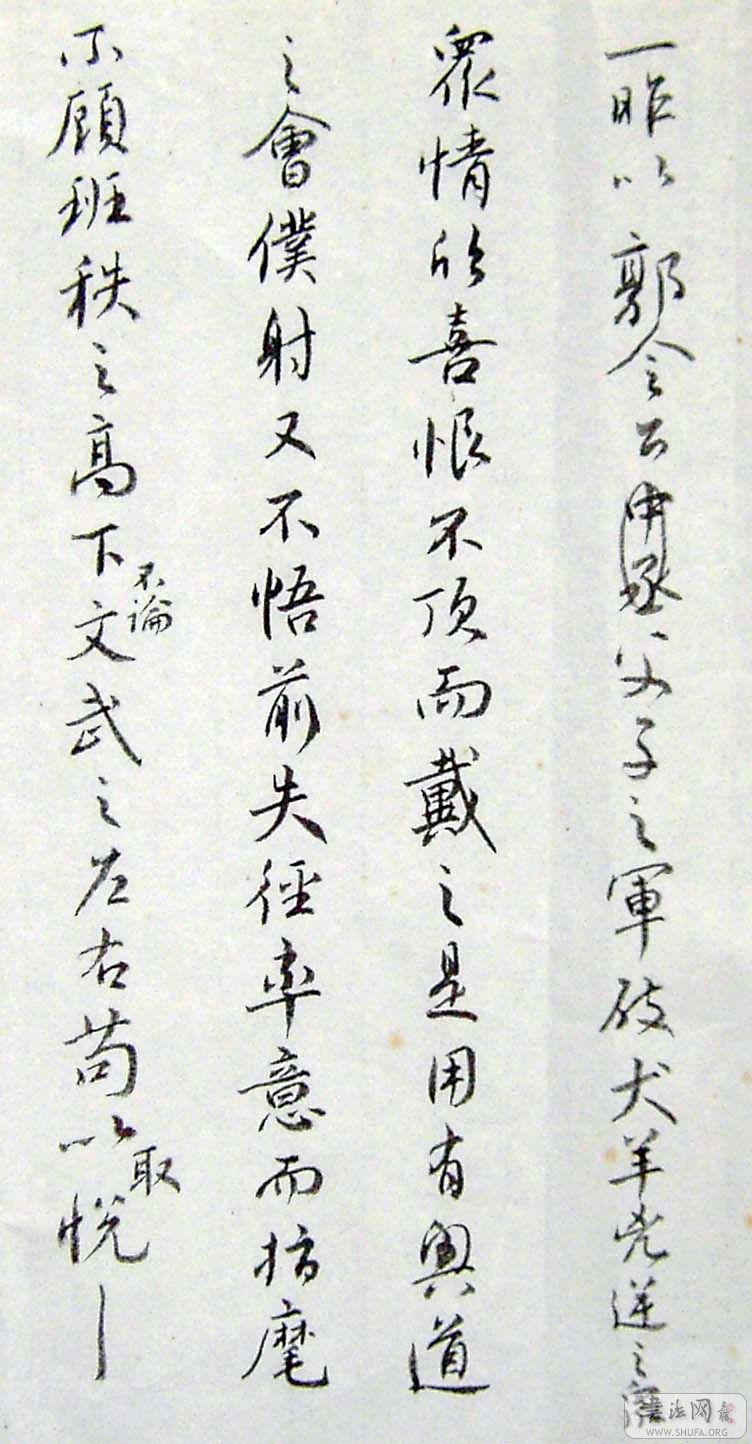 一昨以郭令公中丞父子之軍破犬羊兇逆之
衆情欣喜恨不頂而戴之是用有興道
之會僕射又不悟前失徑率意而指麾
不顧班秩之高下不論文武之左右苟以取悅
書法网
WWW.SHUFA.ORG